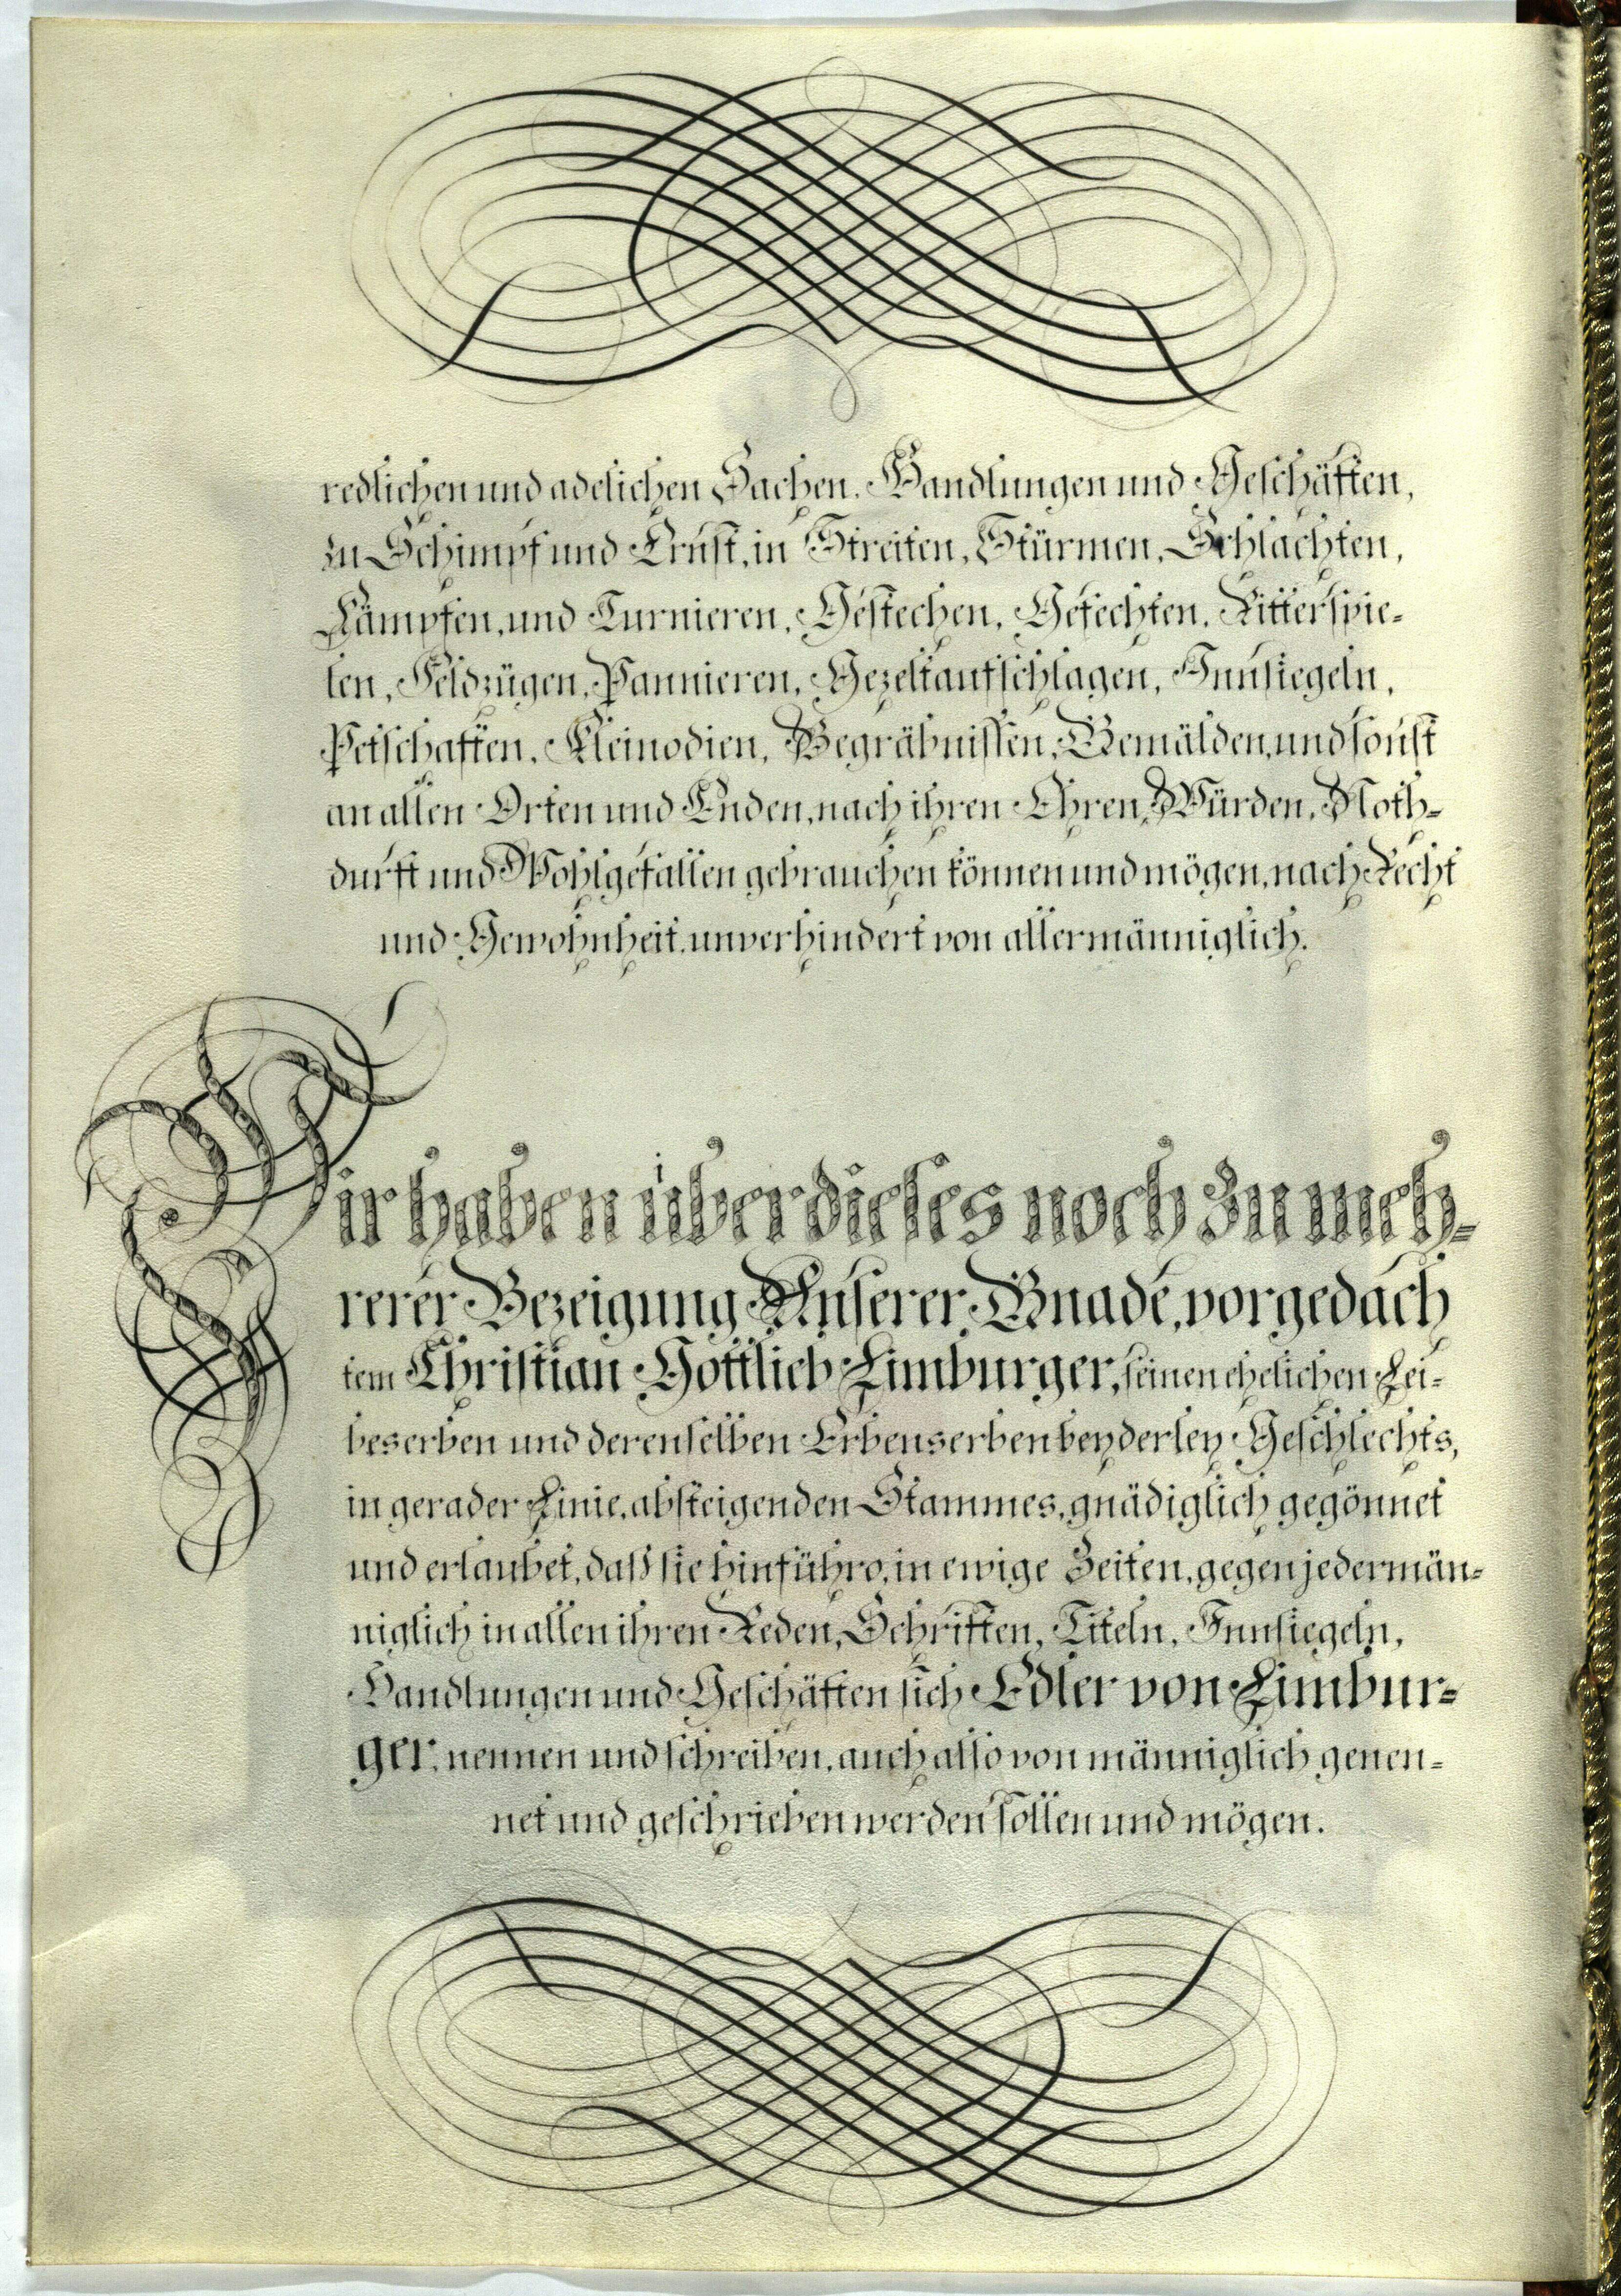 redlichen und adelichen Sachen, Handlungen und Geschäften,
zu Schimpf und Ernst, in Streiten, Stürmen, Schlachten,
Kämpfen, und Turnieren, Gestechen, Gefechten, Ritterspie-
len, Feldzügen, Pannieren, Gezeltaufschlagen, Innsiegeln,
Petschaften, Kleinodien, Begräbnissen, Gemälden, und sonst
an allen Orten und Enden, nach ihren Ehren, Würden, Noth-
durft und Wohlgefallen gebrauchen können und mögen, nach Recht
und Gewohnheit, unverhindert von allermänniglich.
Wir haben über dieses noch zu meh-
rerer Bezeigung Unserer Gnade, vorgedach
tem Christian Gottlieb Limburger, seinen ehelichen Lei-
beserben und derenselben Erbenserben beyderley Geschlechts,
in gerader Linie, absteigenden Stammes, gnädiglich gegönnet
und erlaubet, daß sie hinführo, in ewige Zeiten, gegen jedermän-
niglich in allen ihren Reden, Schriften, Titeln, Innsiegeln,
Handlungen und Geschäften sich Edler von Limbur-
ger, nennen und schreiben, auch also von männiglich genen-
net und geschrieben werden sollen und mögen.